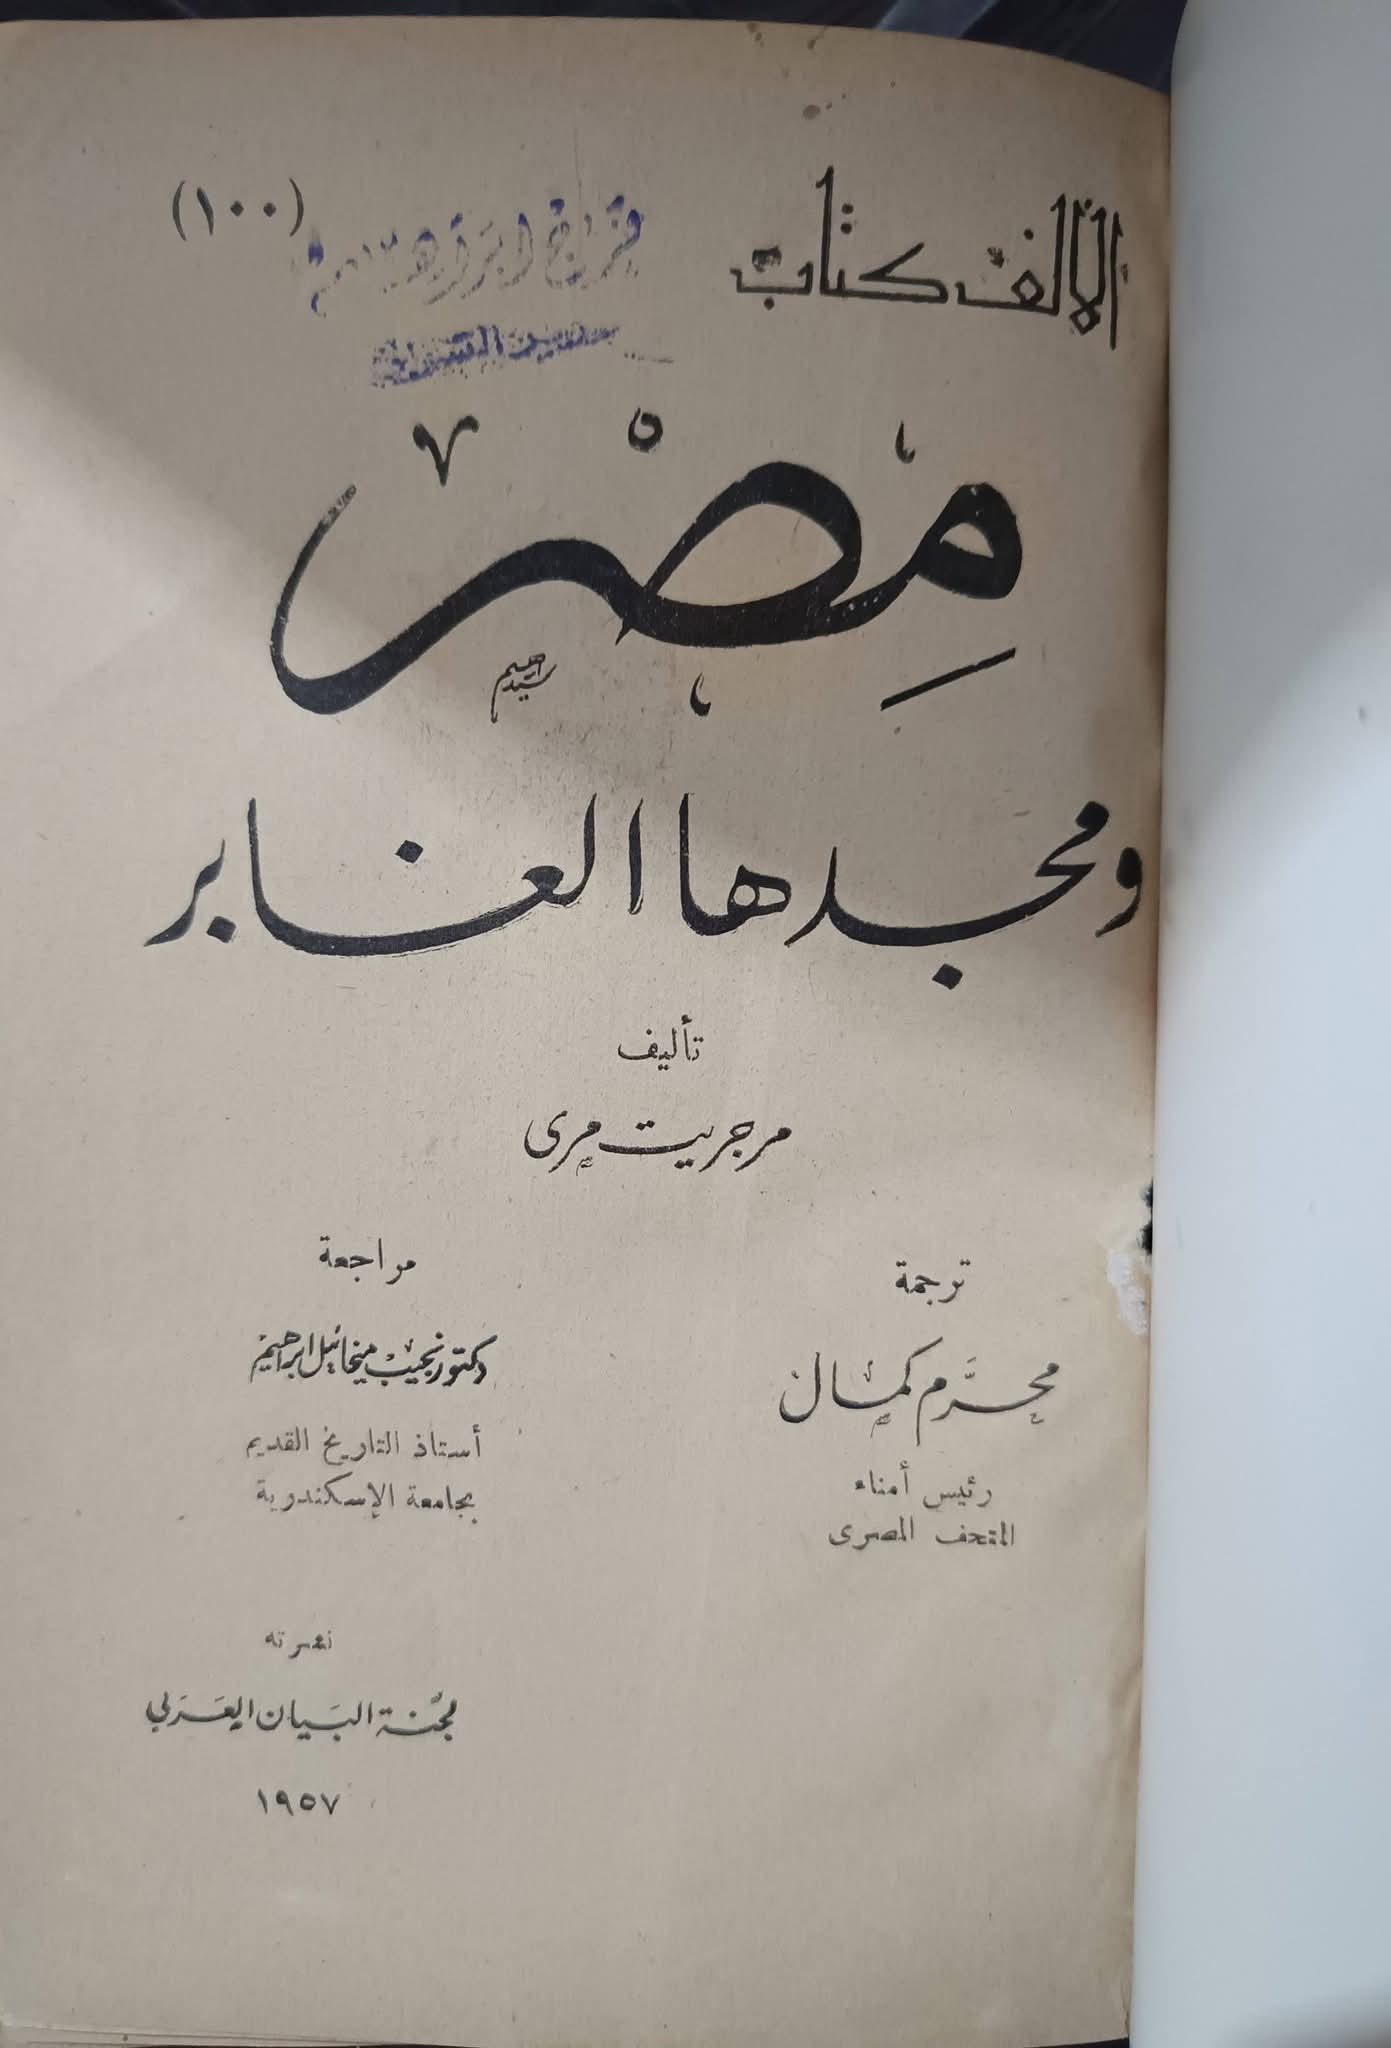 الألف كتاب
(١٠٠)
فرج ابراهيم
مِصْرُ
سيد ابراهيم
ومجدها الغابر
تأليف
مرجريت مرى
ترجمة
محرَّم كمال
رئيس أمناء
المتحف المصرى
مراجعة
دكتور نجيب ميخائيل ابراهيم
أستاذ التاريخ القديم
بجامعة الإسكندرية
نشرته
لجنة البيان العربي
١٩٥٧